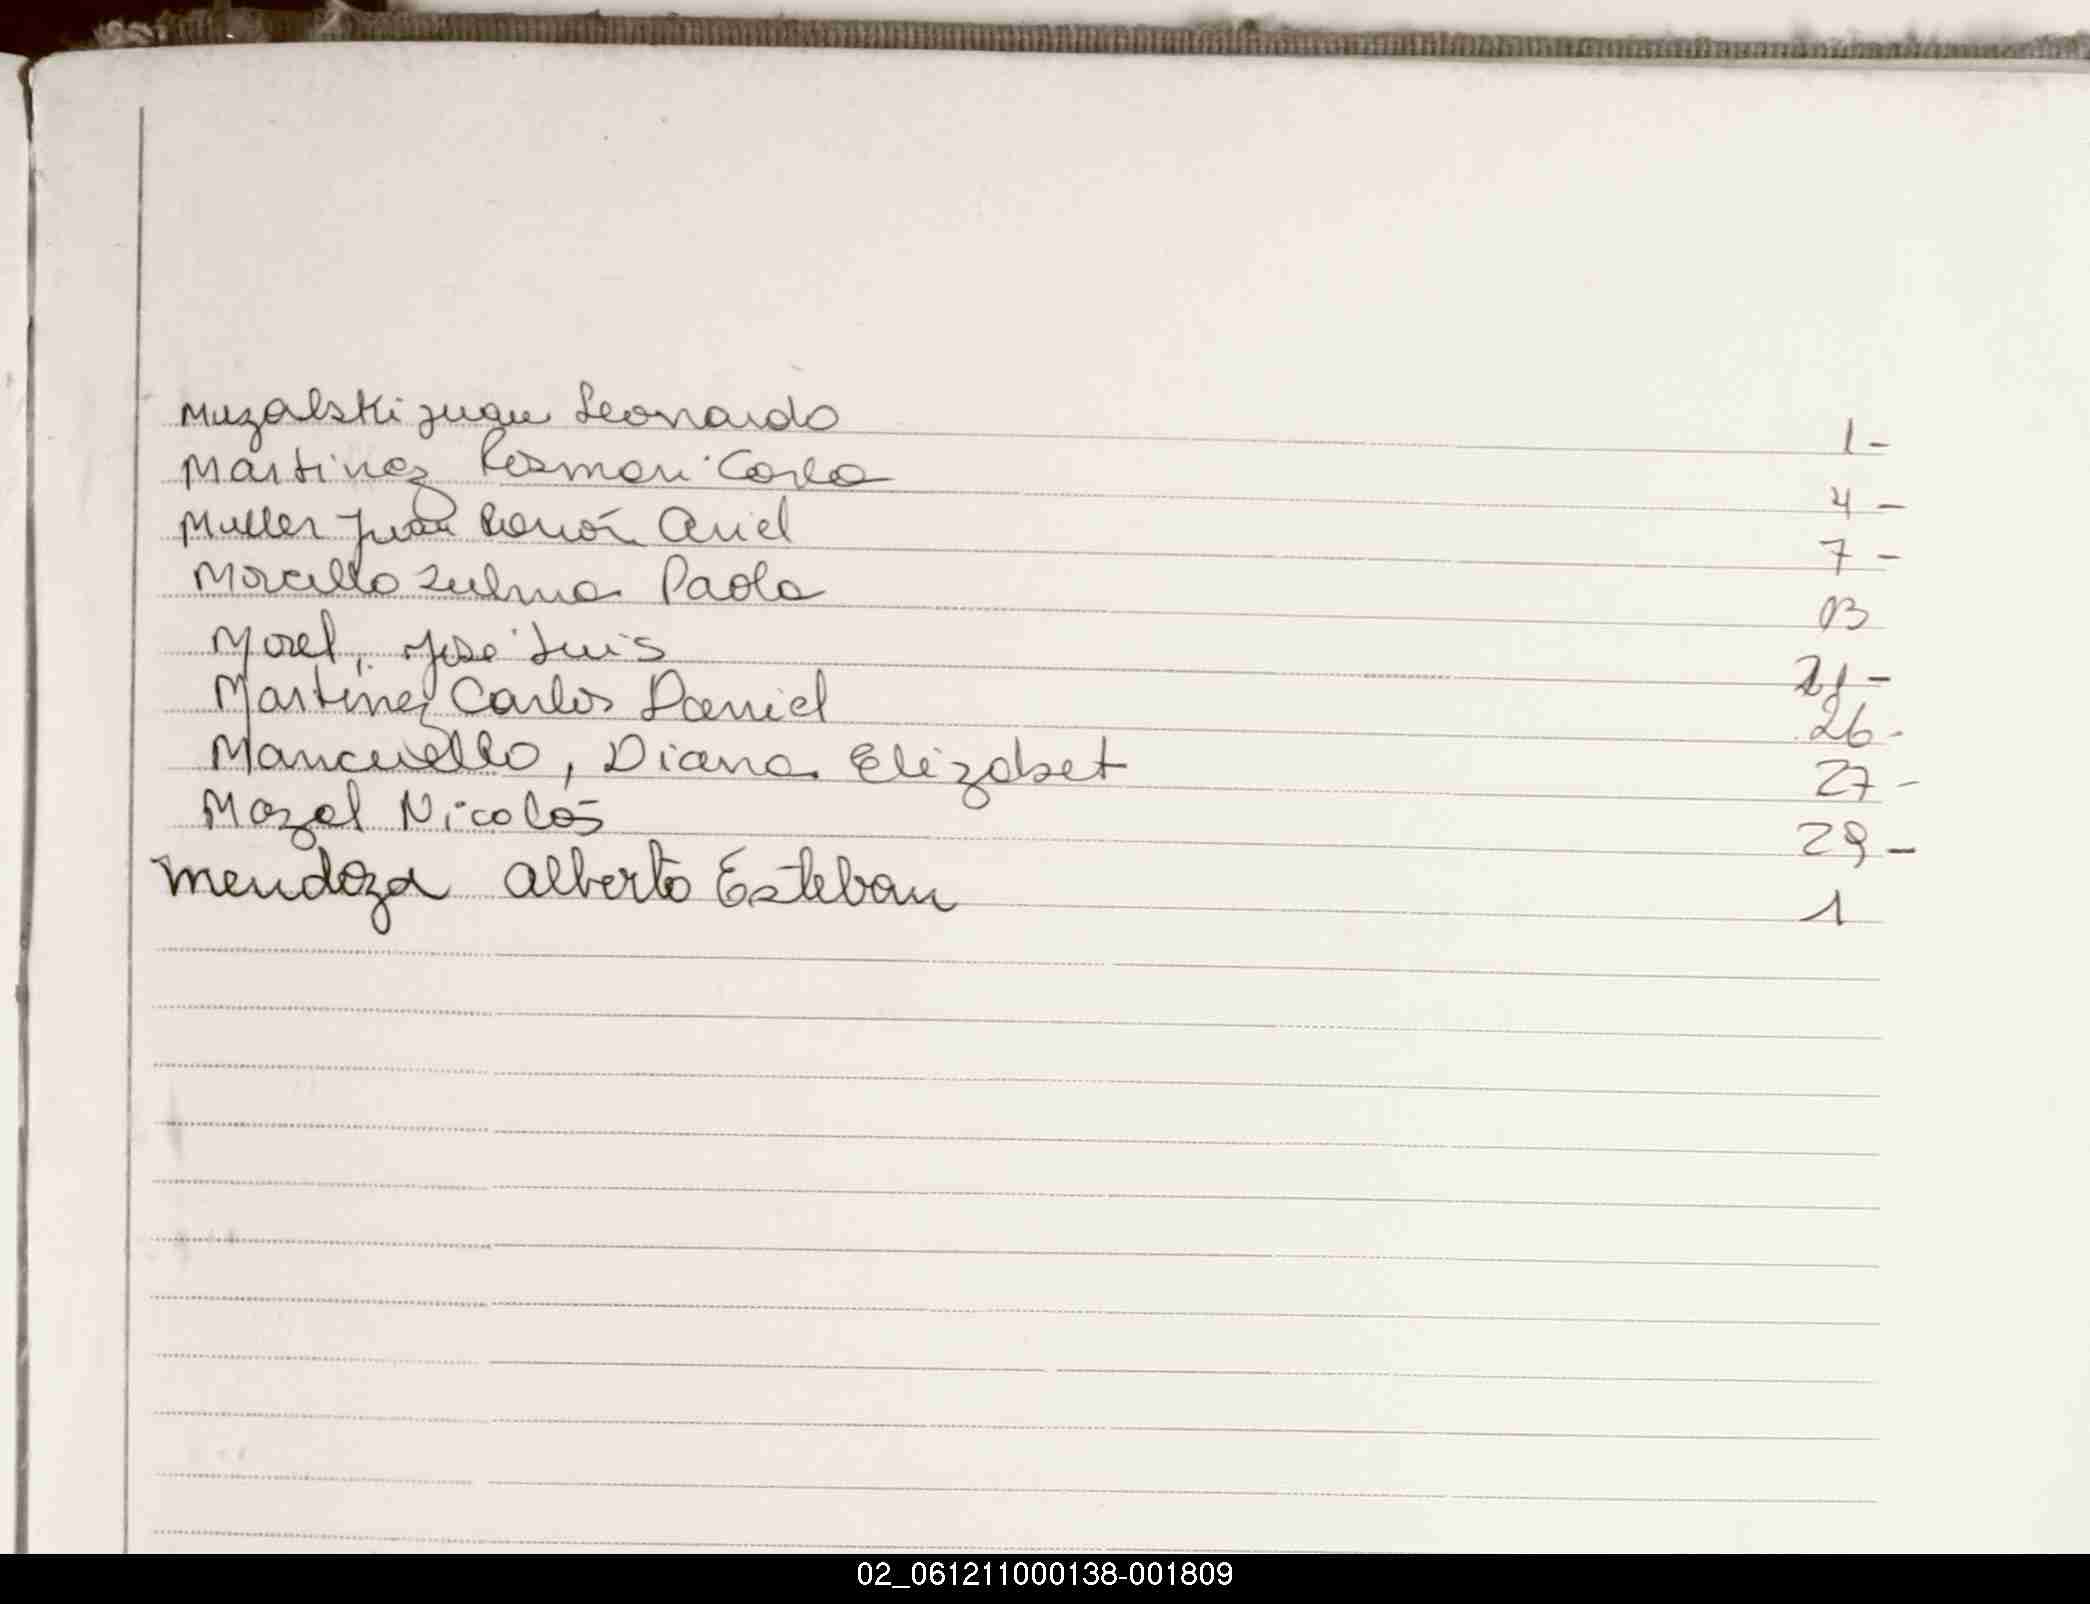 Muzalski juan Leonardo 1-
Martinez Rosmari Carla 4-
Muller Juan Ramón Ariel 7-
Morcillo Zulma Paola 13
Morel, José Luis 21-
Martinez Carlos Daniel 26-
Mancuello, Diana Elizabet 27-
Mazal Nicolás 29-
Mendoza Alberto Esteban 1
02_061211000138-001809